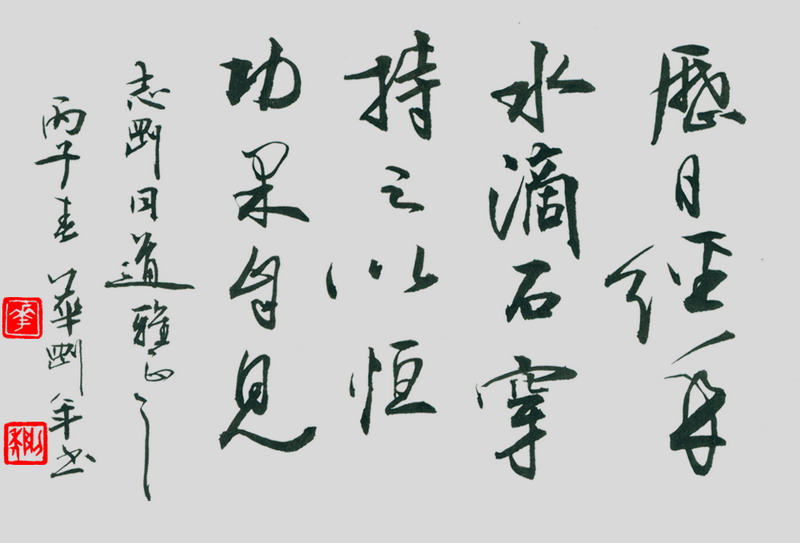 歷日經年
水滴石穿
持之以恒
功果自見
志剛同道雅正之
丙子春 華剛年書